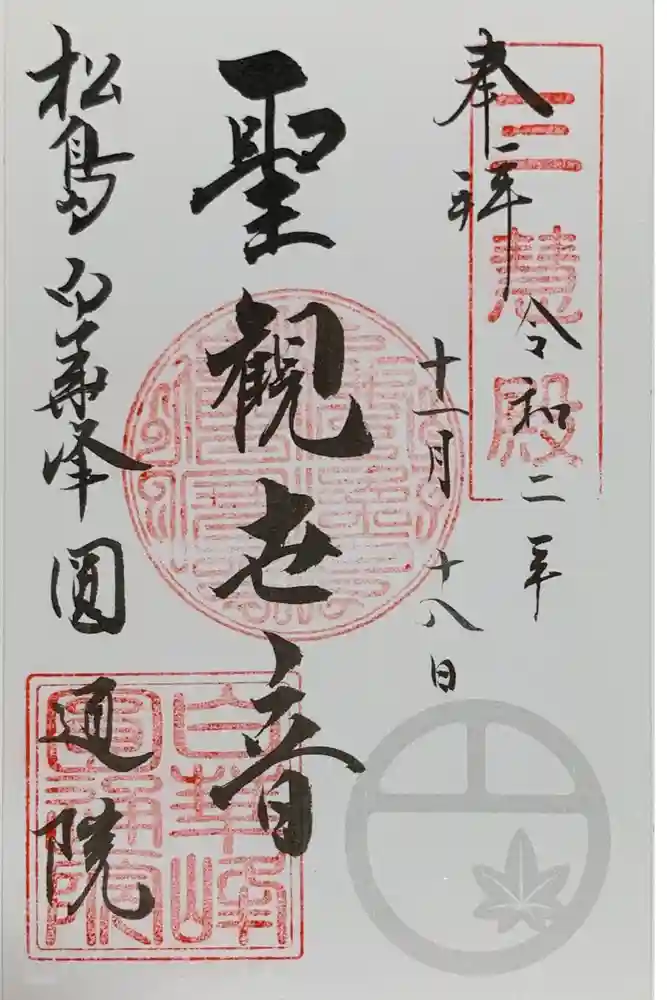 奉拝
三慧殿
令和二年
十一月十八日
聖観世音
松島白華峰圓通院
白華峰
圓通院